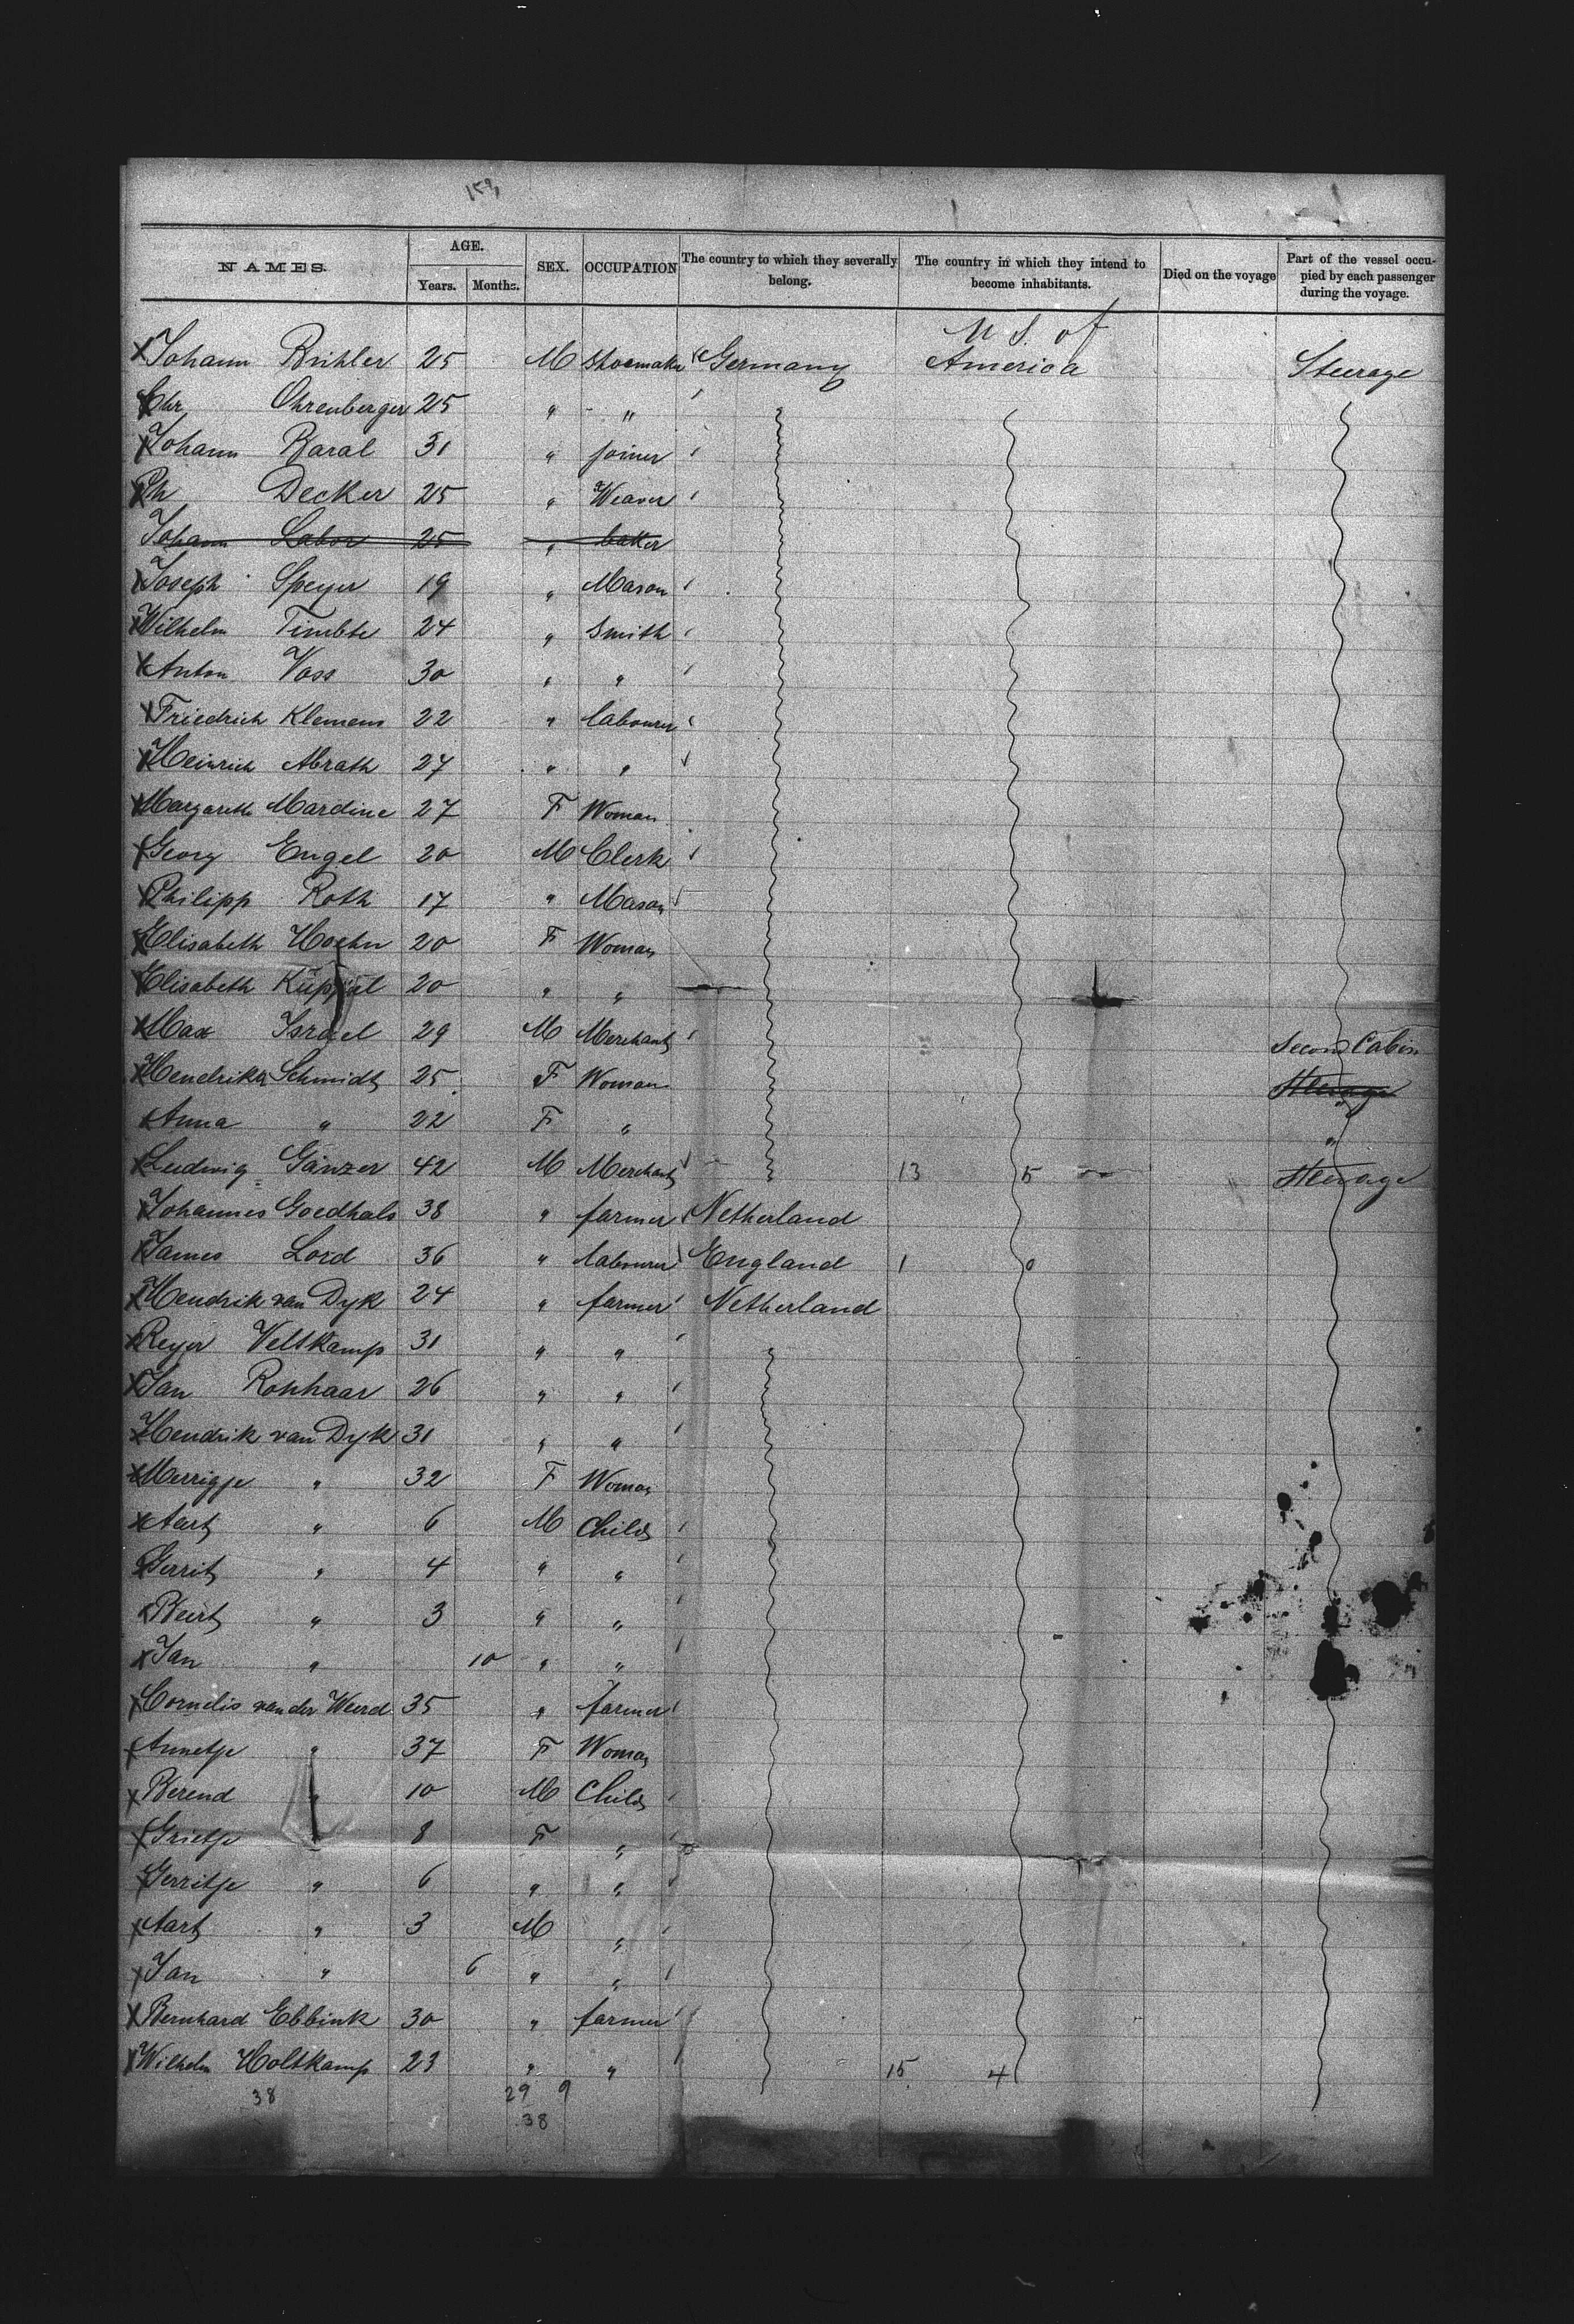 159
NAMES. AGE. Years. Months. SEX. OCCUPATION The country to which they severally belong. The country in which they intend to become inhabitants. Died on the voyage Part of the vessel occupied by each passenger during the voyage.
U S. of
Johann Brihler 25 M Shoemaker Germany America Steerage
Chr Ohrenberger 25 " "
Johann Baral 31 " joiner
Ph Decker 25 " Weaver
Johann Labor 25 " baker
Joseph Speyer 19 " Mason
Wilhelm 24 " Smith
Anton Voss 30 " "
Friedrich Klemens 22 " labourer
Heinrich Abrath 27 " "
Margarethe Mardine 27 F Woman
Georg Engel 20 M Clerk
Philipp Roth 17 " Mason
Elisabeth Hoehn 20 F Woman
Elisabeth Küppel 20 " "
Max Israel 29 M Merchant Second Cabin
Hendrika Schmidt 25 F Woman Steerage "
Anna " 22 F " "
Ludwig Gänzer 42 M Merchant 13 5 Steerage
Johannes Goedhals 38 " farmer Netherland
James Lord 36 " labourer England 1 0
Hendrik van Dyk 24 " farmer Netherland
Reyer Veltkamp 31 " "
Jan Rophaar 26 " "
Hendrik van Dyk 31 " "
Merrigje " 32 F Woman
Aart " 6 M Child
Gerrit " 4 " "
Beert " 3 " "
Jan " 10 " "
Cornelis van der Weerd 35 " farmer
Annetje " 37 F Woman
Berend " 10 M Child
Grietje 8 F "
Gerritje " 6 " "
Aart " 3 M "
Jan " 6 " "
Bernhard Ebbink 30 " farmer
Wilhelm Holtkamp 23 " " 15 4
38 29 9
38